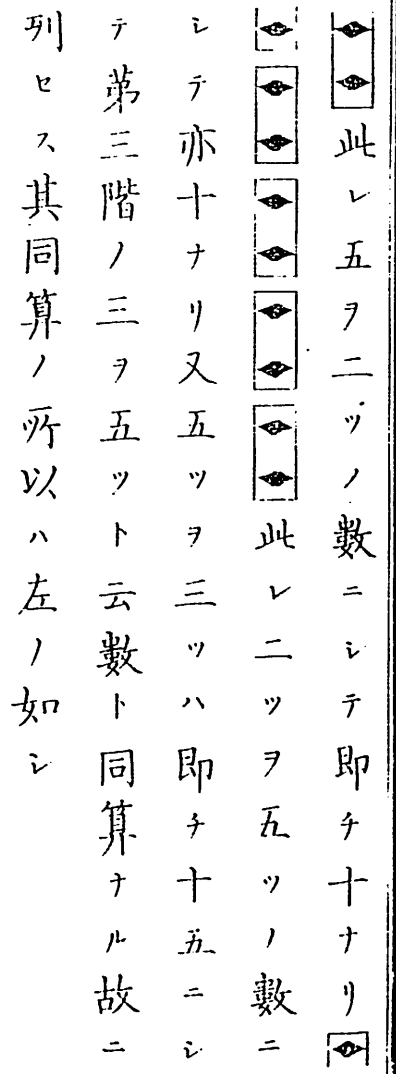 此レ五ヲ二ツノ數ニシテ即チ十ナリ
此レ二ツヲ五ツノ數ニ
シテ亦十ナリ又五ツヲ三ツハ即チ十五ニシ
テ第三階ノ三ヲ五ツト云數ト同算ナル故ニ
列セス其同算ノ所以ハ左ノ如シ